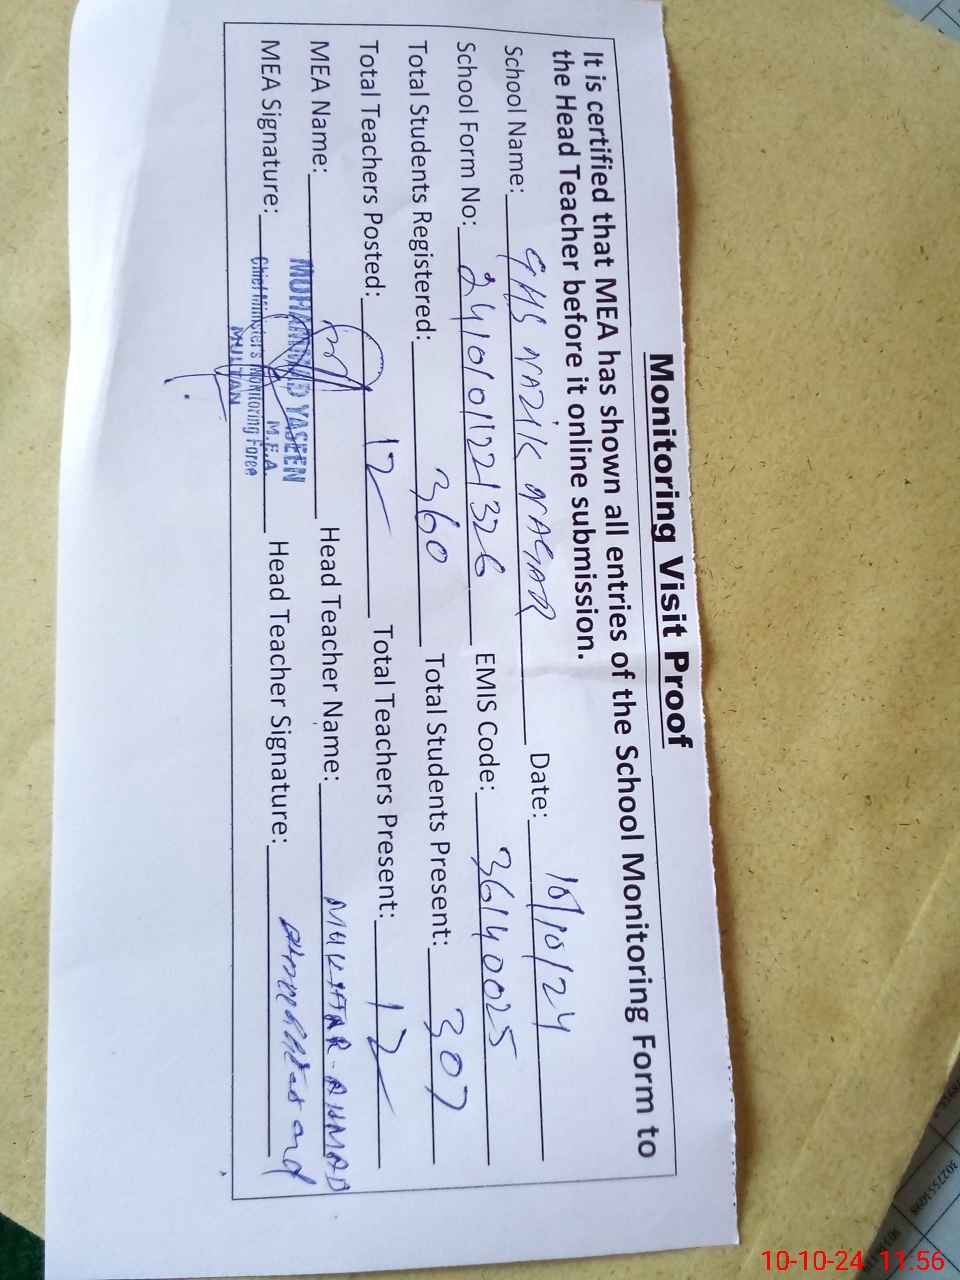 Monitoring Visit Proof
It is certified that MEA has shown all entries of the School Monitoring Form to
the Head Teacher before it online submission.
School Name: GHS NAZIK NAGAR Date: 10/10/24
School Form No: 2410101221326 EMIS Code: 36140025
Total Students Registered: 360 Total Students Present: 307
Total Teachers Posted: 12 Total Teachers Present: 12
MEA Name: MUHAMMAD YASEEN Head Teacher Name: MUKHTAR AHMAD
M.E.A
MEA Signature: Chief Minister's Monitoring Force Head Teacher Signature:
MULTAN
10-10-24 11:56